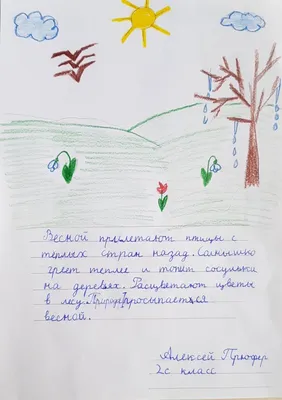 Весной прилетают птицы с
теплых стран назад. Солнышко
греет теплее и топит сосульки
на деревьях. Расцветают цветы
в лесу. Природа просыпается
весной.
Алексей Прюфер
2с класс